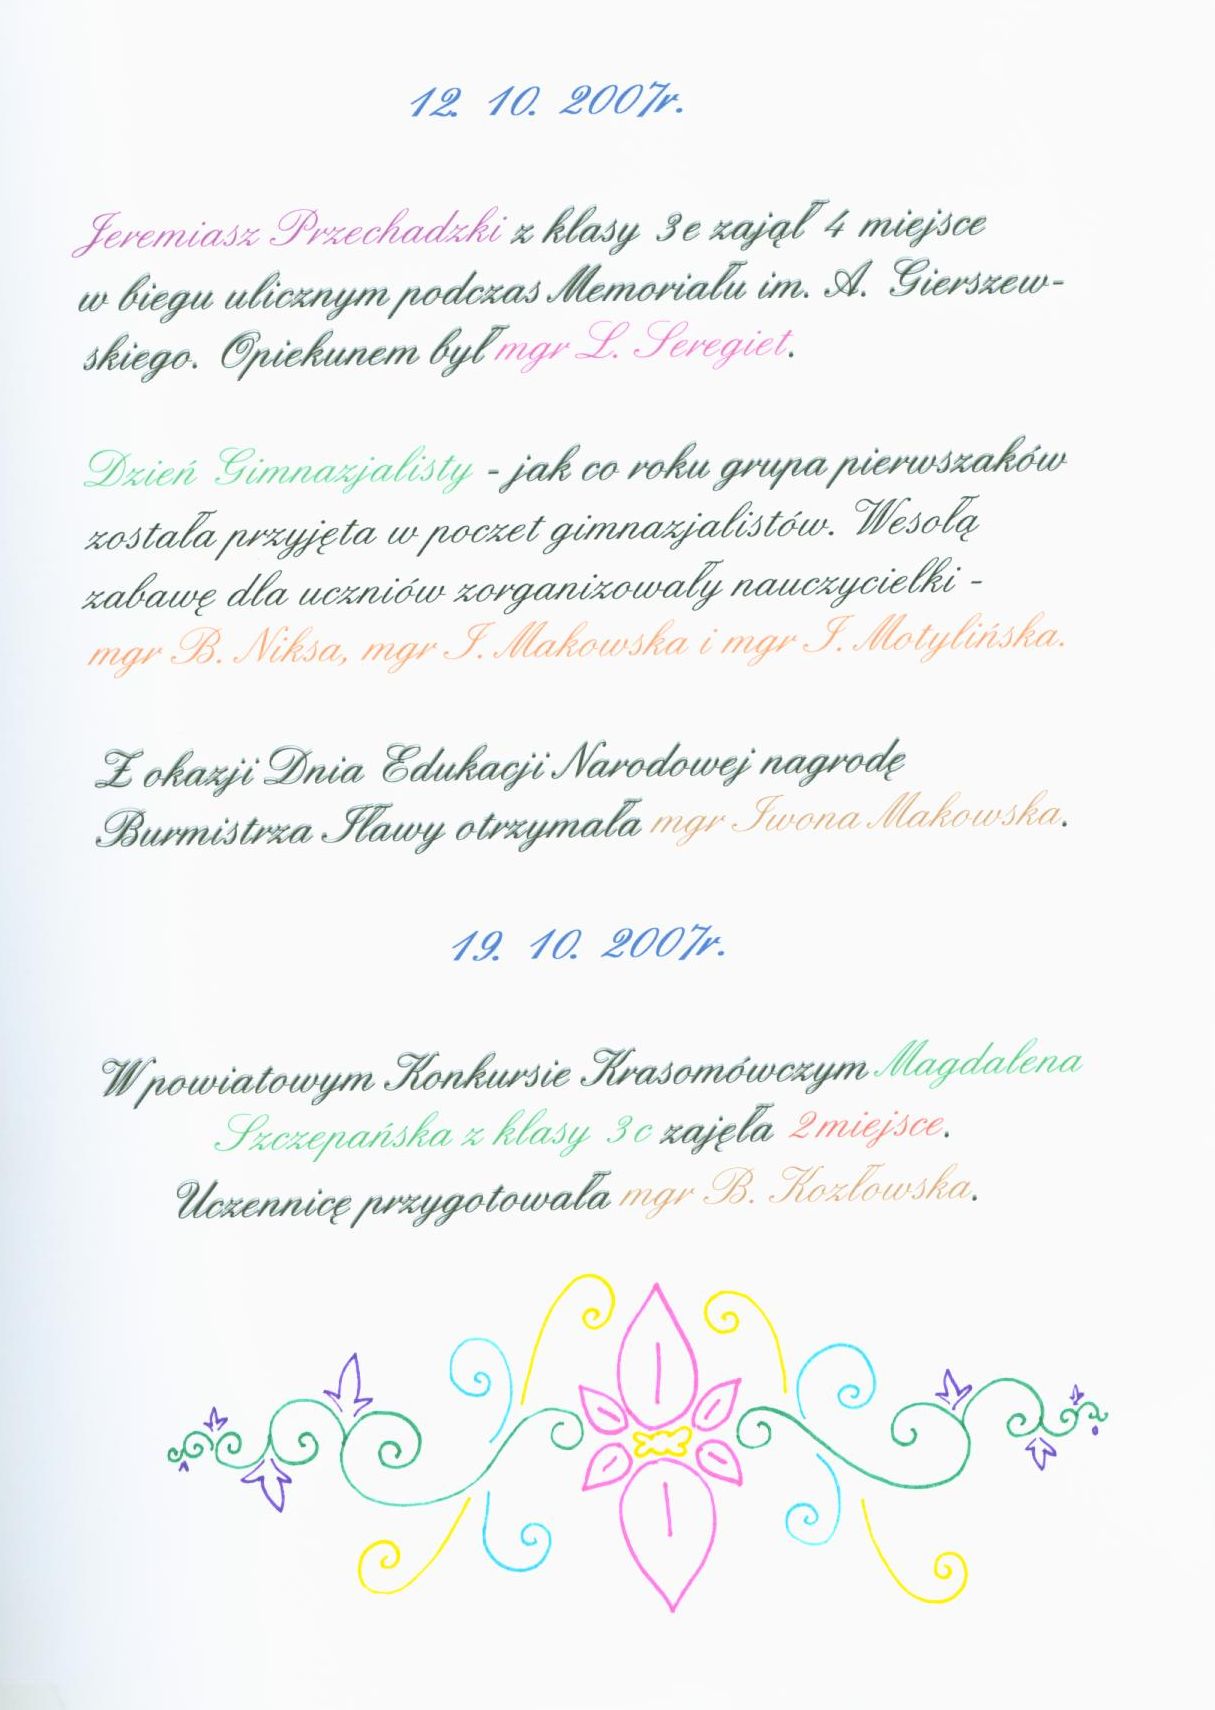 12. 10. 2007r.
Jeremiasz Przechadzki z klasy 3e zajął 4 miejsce
w biegu ulicznym podczas Memoriału im. A. Gierszew-
skiego. Opiekunem był mgr L. Seregiet.
Dzień Gimnazjalisty - jak co roku grupa pierwszaków
została przyjęta w poczet gimnazjalistów. Wesołą
zabawę dla uczniów zorganizowały nauczycielki -
mgr B. Niksa, mgr I. Makowska i mgr I. Motylińska.
Z okazji Dnia Edukacji Narodowej nagrodę
Burmistrza Iławy otrzymała mgr Iwona Makowska.
19. 10. 2007r.
W powiatowym Konkursie Krasomówczym Magdalena
Szczepańska z klasy 3c zajęła 2 miejsce.
Uczennicę przygotowała mgr B. Kozłowska.